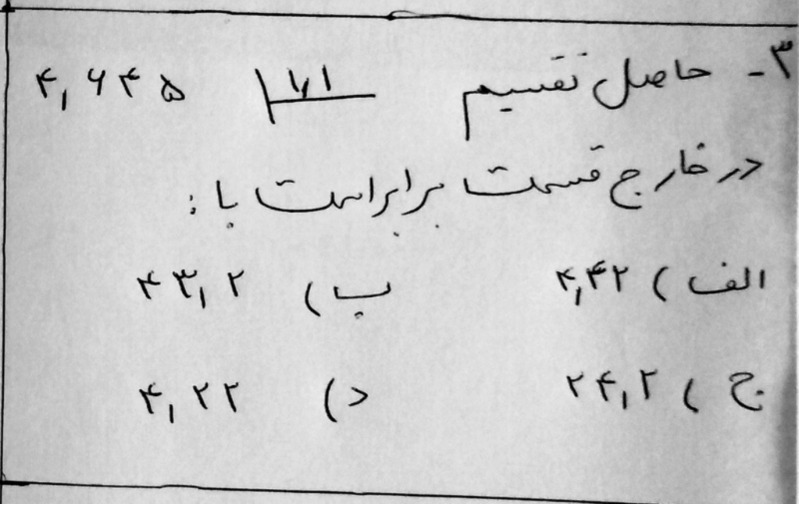 ۳- حاصل تقسیم ۴٫۶۴۵ | ۱٫۱
در خارج قسمت برابر است با :
الف ) ۴٫۴۲ ب ) ۴۳٫۲
ج ) ۲۴٫۲ د ) ۴٫۲۲